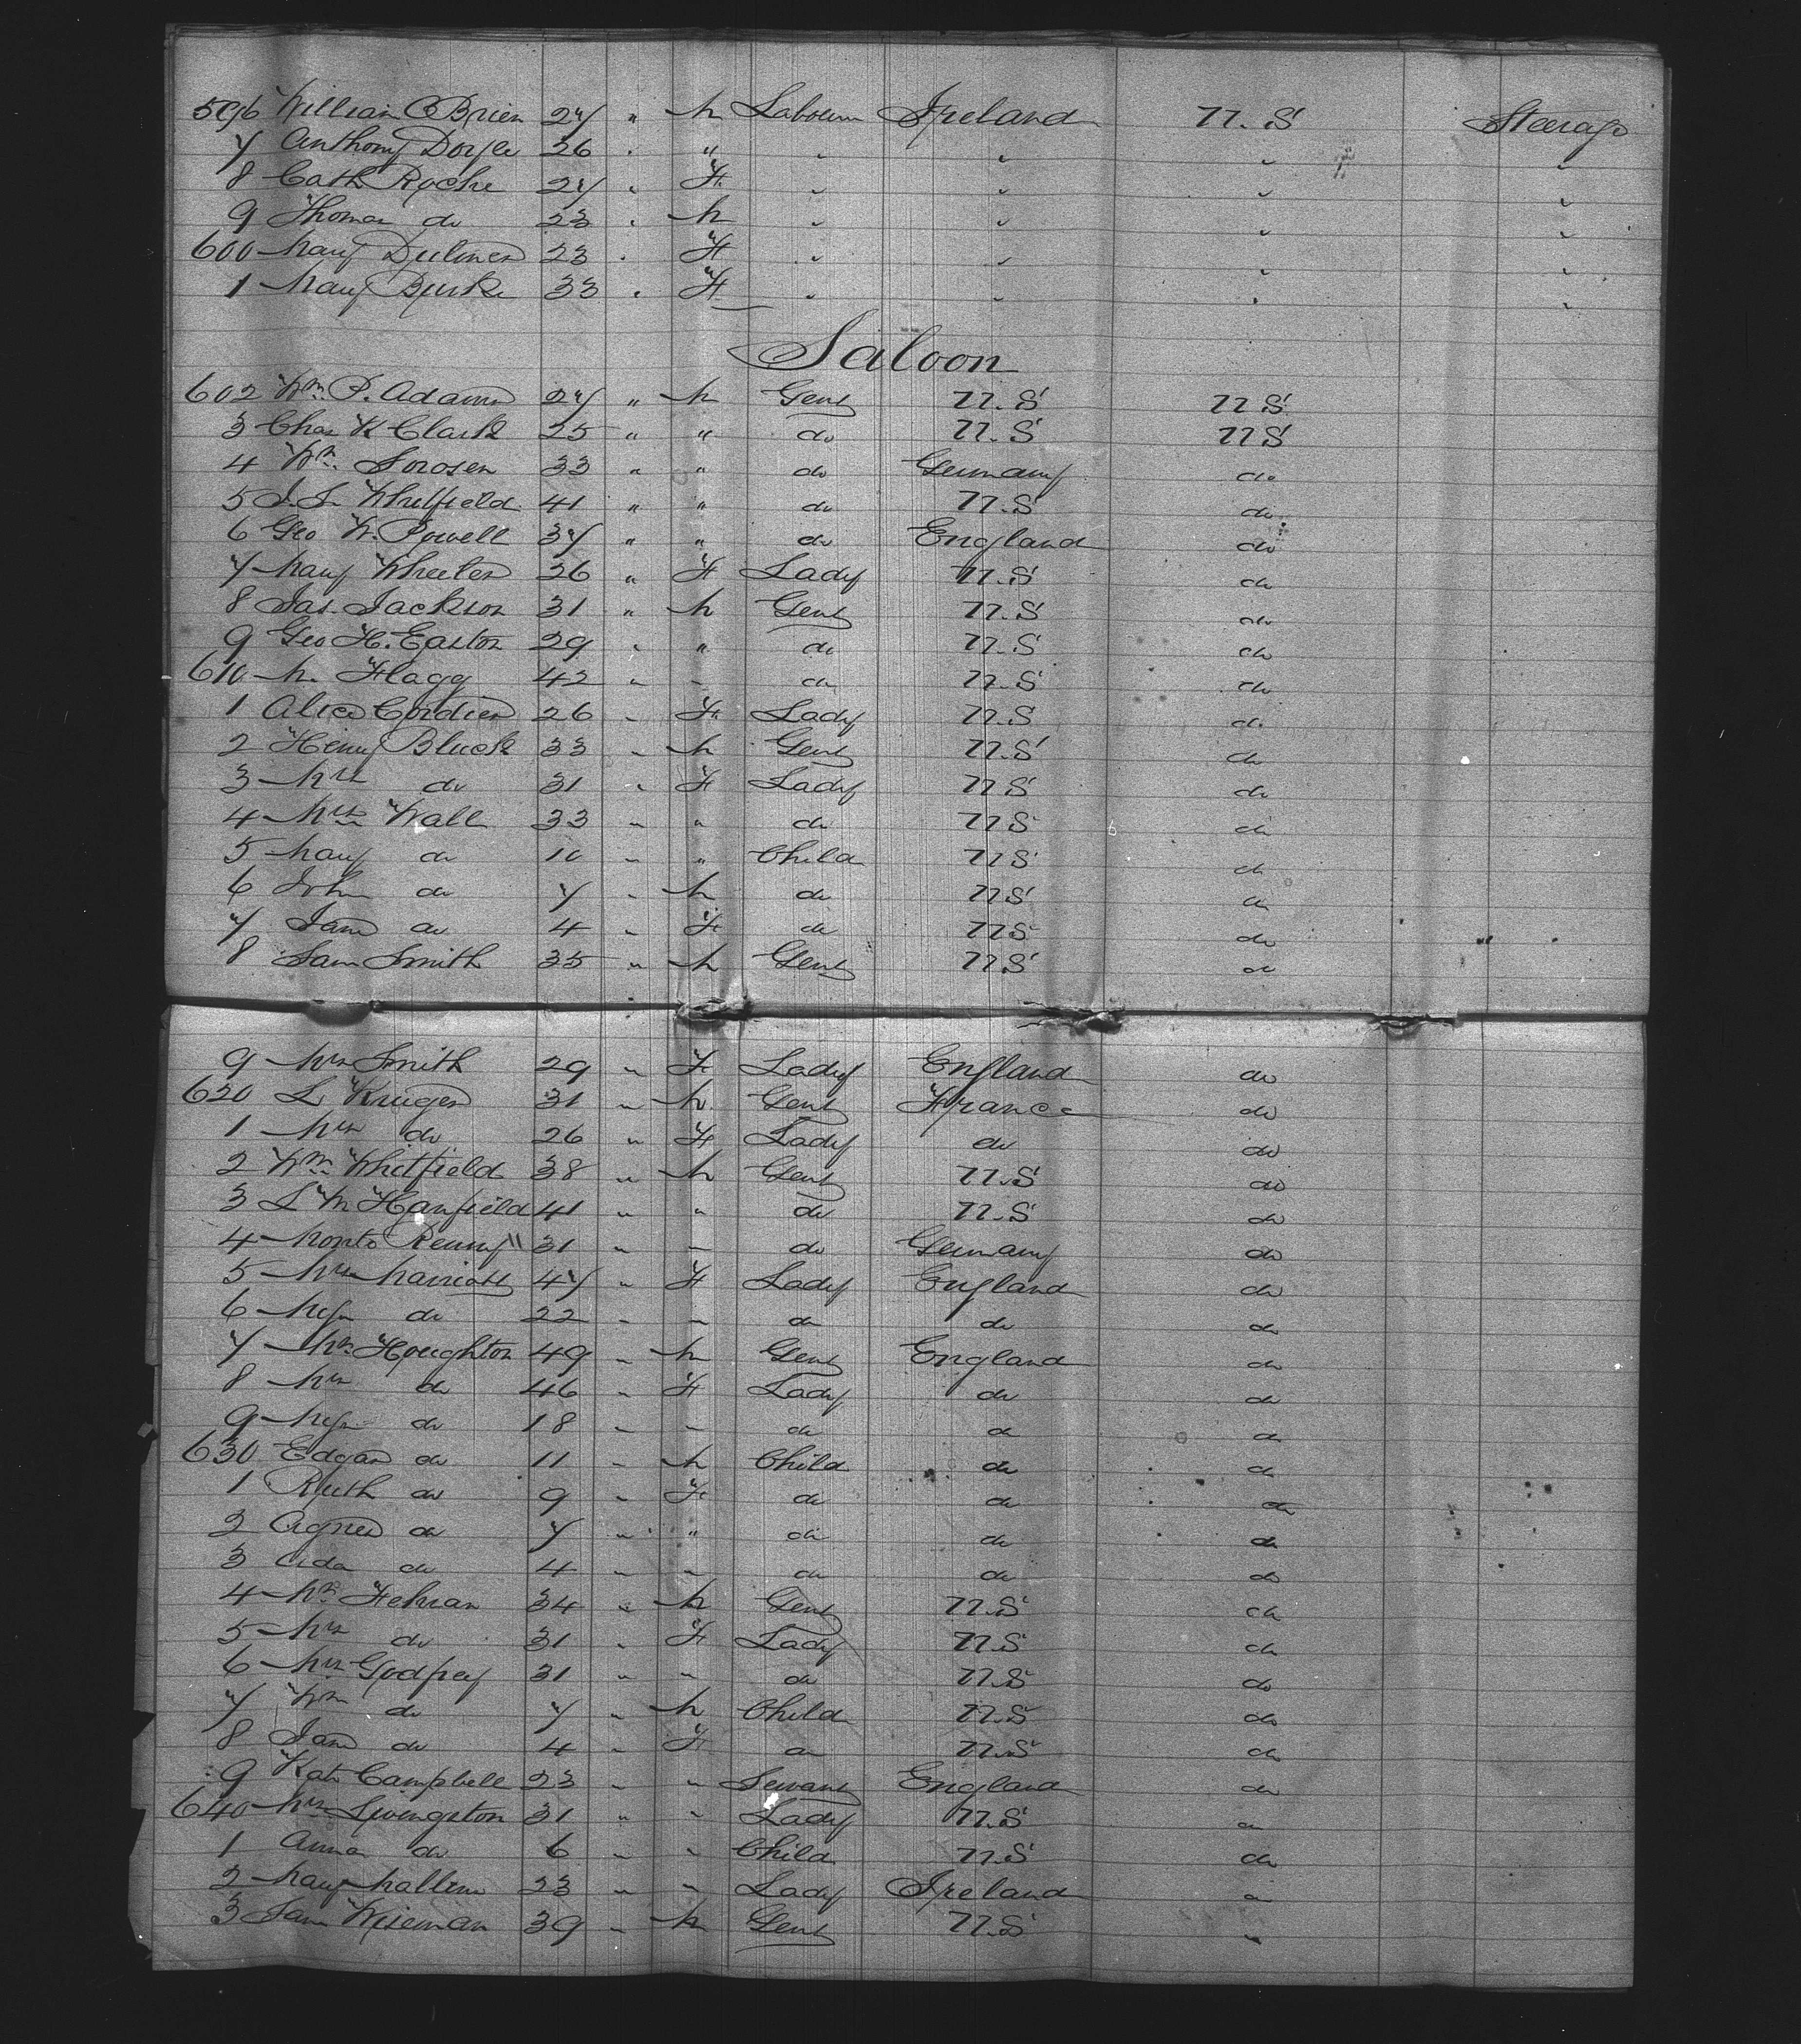 596 William O'Brien 27 " M Labourer Ireland U.S. Steerage
7 Anthony Doyle 26 " " " " " "
8 Cath Roche 27 " F. " " " "
9 Thomas do 23 " M " " " "
600 Mary 23 " F " " " "
1 Mary Burke 33 " F " " " "
Saloon
602 Wm P. Adams 27 " M Gent U.S U S
3 Chas K Clark 25 " " do U.S U S
4 Wm. Sorosen 33 " " do Germany do
5 Whitfield 41 " " do U.S do
6 Geo W. Powell 37 " " do England do
7 Mary Wheeler 26 " F Lady U.S do
8 Jas. Jackson 31 " M Gent U.S do
9 Geo H. Easton 29 " " do U.S do
610 M. Flagg 42 " " do U.S do
1 Alice Cordier 26 " F. Lady U.S do
2 Henry Bluck 33 " M Gent U.S do
3 Mrs do 31 " F Lady U.S do
4 Mrs Wall 33 " " do U.S do
5 Mary do 10 " " Child U.S do
6 John do 7 " M do U.S do
7 Jane do 4 " F. do U.S do
8 Sam Smith 35 " M Gent U.S do
9 Mrs Smith 29 " F. Lady England do
620 L Kruger 31 " M Gent France do
1 Mrs do 26 " F Lady do do
2 Wm Whitfield 38 " M Gent U.S do
3 L M Hanfield 41 " " do U.S do
4 31 " " do Germany do
5 Mrs Marriott 47 " F Lady England do
6 do 22 " " do do do
7 Mr. Houghton 49 " M Gent England do
8 Mrs do 46 " F Lady do do
9 do 18 " " do do do
630 Edgar do 11 " M Child do do
1 Ruth do 9 " F. do do do
2 Agnes do 7 " " do do do
3 Ada do 4 " " do do do
4 Mr. 34 " M Gent U.S do
5 Mrs do 31 " F Lady U.S do
6 Mrs Godfrey 31 " " do U.S do
7 Wm do 7 " M Child U.S do
8 Jane do 4 " F do U.S do
9 Kate Campbell 23 " " Servant England do
640 Mrs Livingston 31 " " Lady U.S do
1 Anna do 6 " " Child U.S do
2 Mary 23 " " Lady Ireland do
3 Sam Wiseman 39 " M Gent U.S "